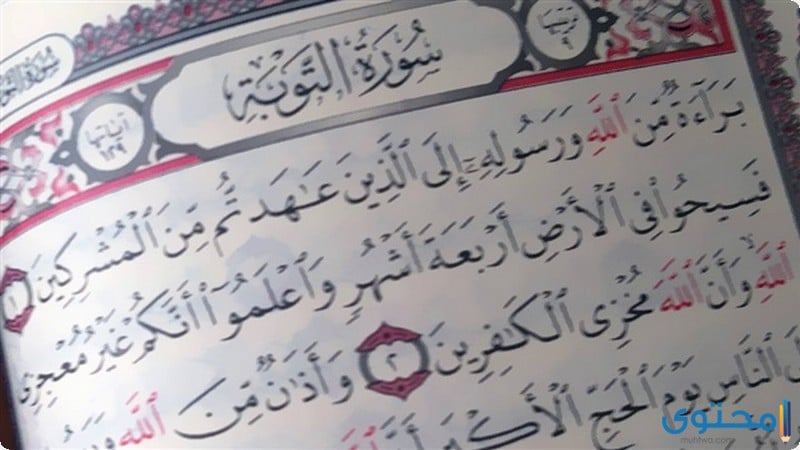 سُورَةُ التَّوْبَةِ
آياتها ١٢٩
بَرَآءَةٌ مِّنَ ٱللَّهِ وَرَسُولِهِۦٓ إِلَى ٱلَّذِينَ عَٰهَدتُّم مِّنَ ٱلْمُشْرِكِينَ ١
فَسِيحُوا۟ فِى ٱلْأَرْضِ أَرْبَعَةَ أَشْهُرٍ وَٱعْلَمُوٓا۟ أَنَّكُمْ غَيْرُ مُعْجِزِى
ٱللَّهِ ۙ وَأَنَّ ٱللَّهَ مُخْزِى ٱلْكَٰفِرِينَ ٢ وَأَذَٰنٌ مِّنَ ٱللَّهِ
ٱلنَّاسِ يَوْمَ ٱلْحَجِّ ٱلْأَكْبَرِ أَنَّ
محتوى
muhtwa.com